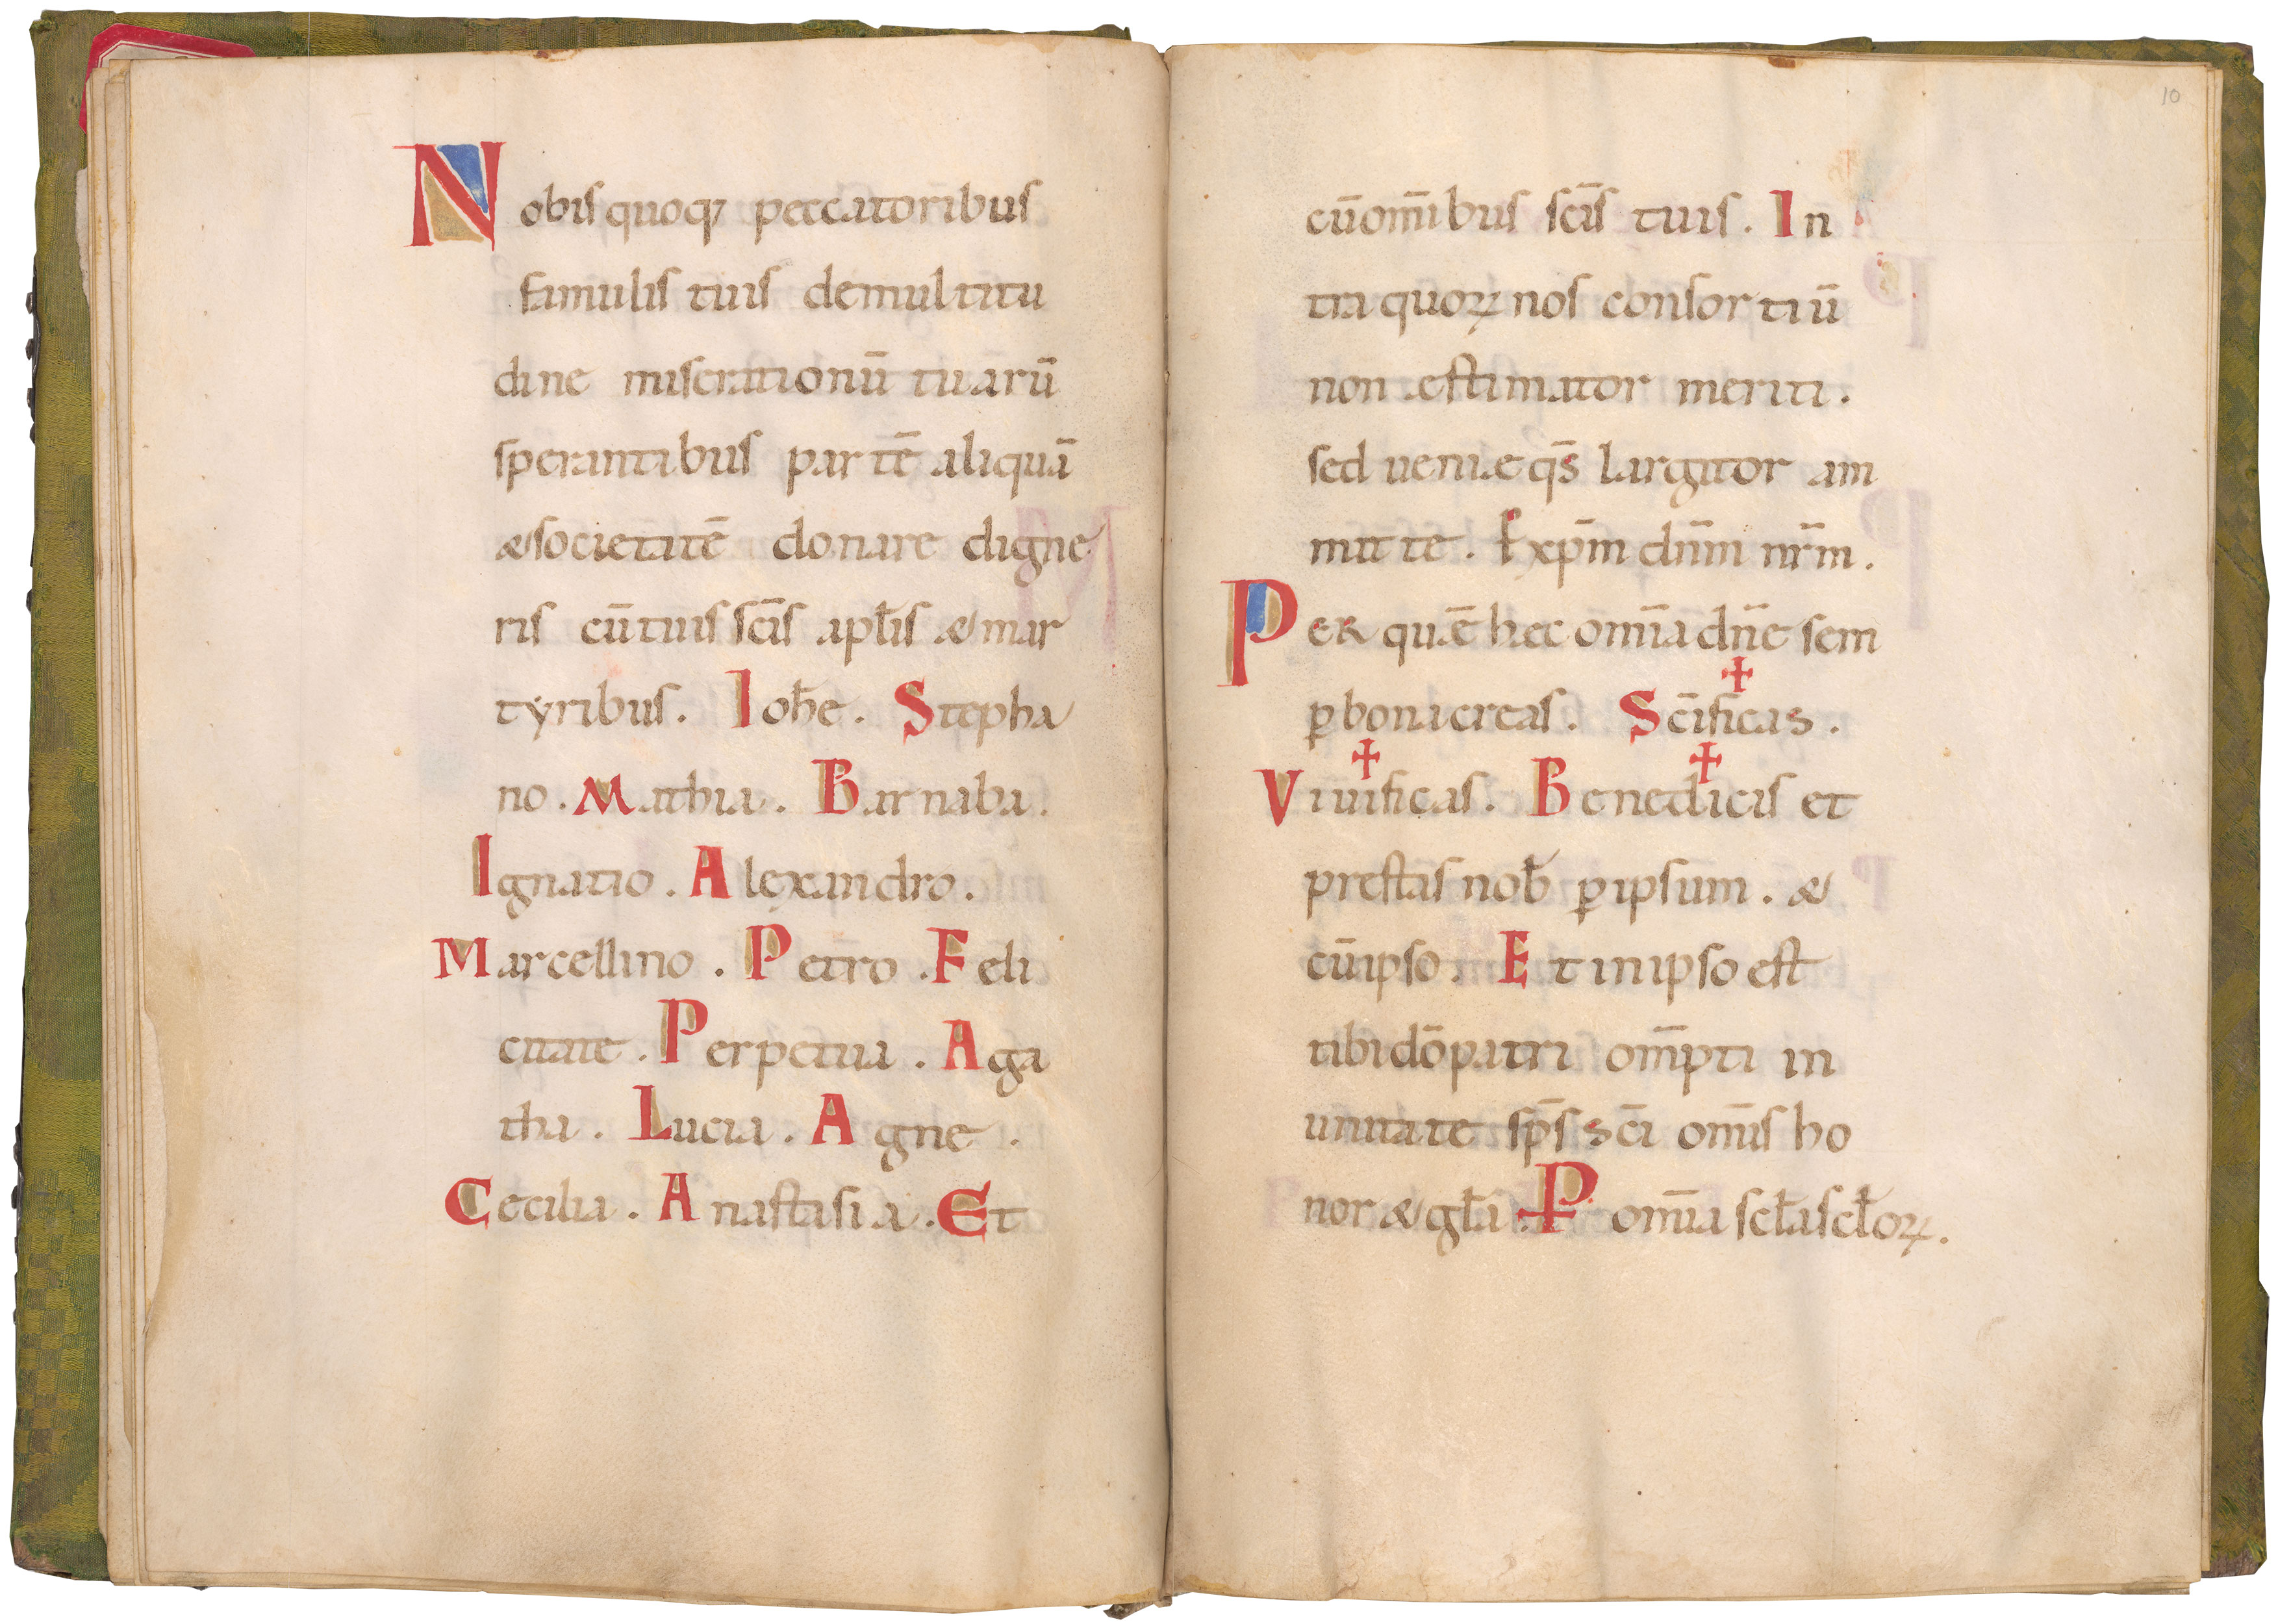 Nobis quoq; peccatoribus
famulis tuis demultitu
dine miserationū tuarū
sperantibus partē aliquā
&societatē donare digne
ris cū tuis sc̄is apl̄is & mar
tyribus. Ioh̄e. Stepha
no. Mathia. Barnaba.
Ignatio. Alexandro.
Marcellino. Petro. Feli
citate. Perpetua. Aga
tha. Lucia. Agne.
Cecilia. Anastasia. Et
10
cū om̄ibus sc̄is tuis. In
tra quoꝝ nos consortiū
non estimator meriti.
sed ueniae q̄s largitor am
mitte. xp̄m dn̄m nr̄m.
Per quē hec om̄ia dn̄e sem
ꝑ bona creas. Sc̄i✝ficas.
Viui✝ficas. Bened✝icis et
prestas nob̄ ꝑ ipsum. &
cū ipso. Et in ipso est
tibi dō patri om̄pti in
unitate sp̄s sc̄i om̄is ho
nor & gl̄a. P om̄ia scl̄a scl̄oꝝ.